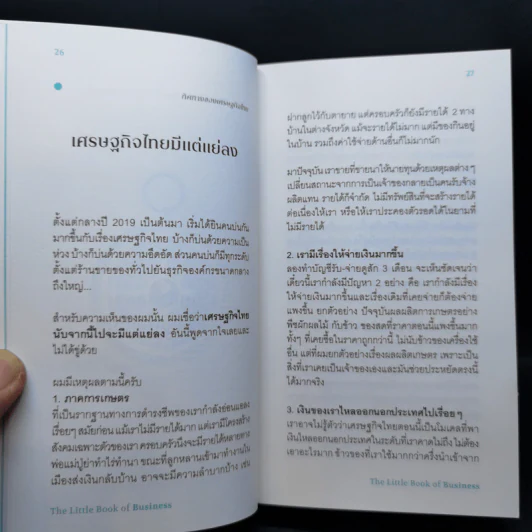 26
ทิศทางของเศรษฐกิจไทย
เศรษฐกิจไทยมีแต่แย่ลง
ตั้งแต่กลางปี 2019 เป็นต้นมา เริ่มได้ยินคนบ่นกัน
มากขึ้นกับเรื่องเศรษฐกิจไทย บ้างก็บ่นด้วยความเป็น
ห่วง บ้างก็บ่นด้วยความอึดอัด ส่วนคนบ่นก็มีทุกระดับ
ตั้งแต่ร้านขายของทั่วไปยันธุรกิจองค์กรขนาดกลาง
ถึงใหญ่...
สำหรับความเห็นของผมนั้น ผมเชื่อว่าเศรษฐกิจไทย
นับจากนี้ไปจะมีแต่แย่ลง อันนี้พูดจากใจเลยและ
ไม่ได้ขู่ด้วย
ผมมีเหตุผลตามนี้ครับ
1. ภาคการเกษตร
ที่เป็นรากฐานทางการดำรงชีพของเรากำลังอ่อนแอลง
เรื่อยๆ สมัยก่อน แม้เราไม่มีรายได้มาก แต่เรามีโครงสร้าง
สังคมเฉพาะตัวของเรา ครอบครัวนึงจะมีรายได้หลายทาง
พ่อแม่ปู่ย่าทำไร่ทำนา ขณะที่ลูกหลานเข้ามาทำงานใน
เมืองส่งเงินกลับบ้าน อาจจะมีความลำบากบ้าง เช่น
The Little Book of Business
27
ฝากลูกไว้กับตายาย แต่ครอบครัวก็ยังมีรายได้ 2 ทาง
บ้านในต่างจังหวัด แม้จะรายได้ไม่มาก แต่มีของกินอยู่
ในบ้าน รวมถึงค่าใช้จ่ายด้านอื่นก็ไม่มากนัก
มาปัจจุบัน เราขายที่ขายนาให้นายทุนด้วยเหตุผลต่างๆ
เปลี่ยนสถานะจากการเป็นเจ้าของกลายเป็นคนรับจ้าง
ผลิตแทน รายได้ก็จำกัด ไม่มีทรัพย์สินที่จะสร้างรายได้
ต่อเนื่องให้เรา หรือให้เราประคองตัวรอดได้ในยามที่
ไม่มีรายได้
2. เรามีเรื่องให้จ่ายเงินมากขึ้น
ลองทำบัญชีรับ-จ่ายดูสัก 3 เดือน จะเห็นชัดเจนว่า
เดี๋ยวนี้เรากำลังมีปัญหา 2 อย่าง คือ เรากำลังมีเรื่อง
ให้จ่ายเงินมากขึ้นและเรื่องเดิมที่เคยจ่ายก็ต้องจ่าย
แพงขึ้น ยกตัวอย่าง ปัจจุบันผลผลิตการเกษตรอย่าง
พืชผักผลไม้ กับข้าว ของสดที่ราคาตอนนี้แพงขึ้นมาก
ทั้งๆ ที่เคยซื้อในราคาถูกกว่านี้ ไม่นับข้าวของเครื่องใช้
อื่น แต่ที่ผมยกตัวอย่างเรื่องผลผลิตเกษตร เพราะเป็น
สิ่งที่เราเคยเป็นเจ้าของเองและมันช่วยประหยัดตรงนี้
ได้มากจริง
3. เงินของเราไหลออกนอกประเทศไปเรื่อยๆ
เราอาจไม่รู้ตัวว่าเศรษฐกิจไทยตอนนี้เป็นโมเดลที่พา
เงินไหลออกนอกประเทศในระดับที่เราคาดไม่ถึง ไม่ต้อง
เอาอะไรมาก ข้าวของที่เราใช้มากกว่าครึ่งนำเข้าจาก
The Little Book of Business